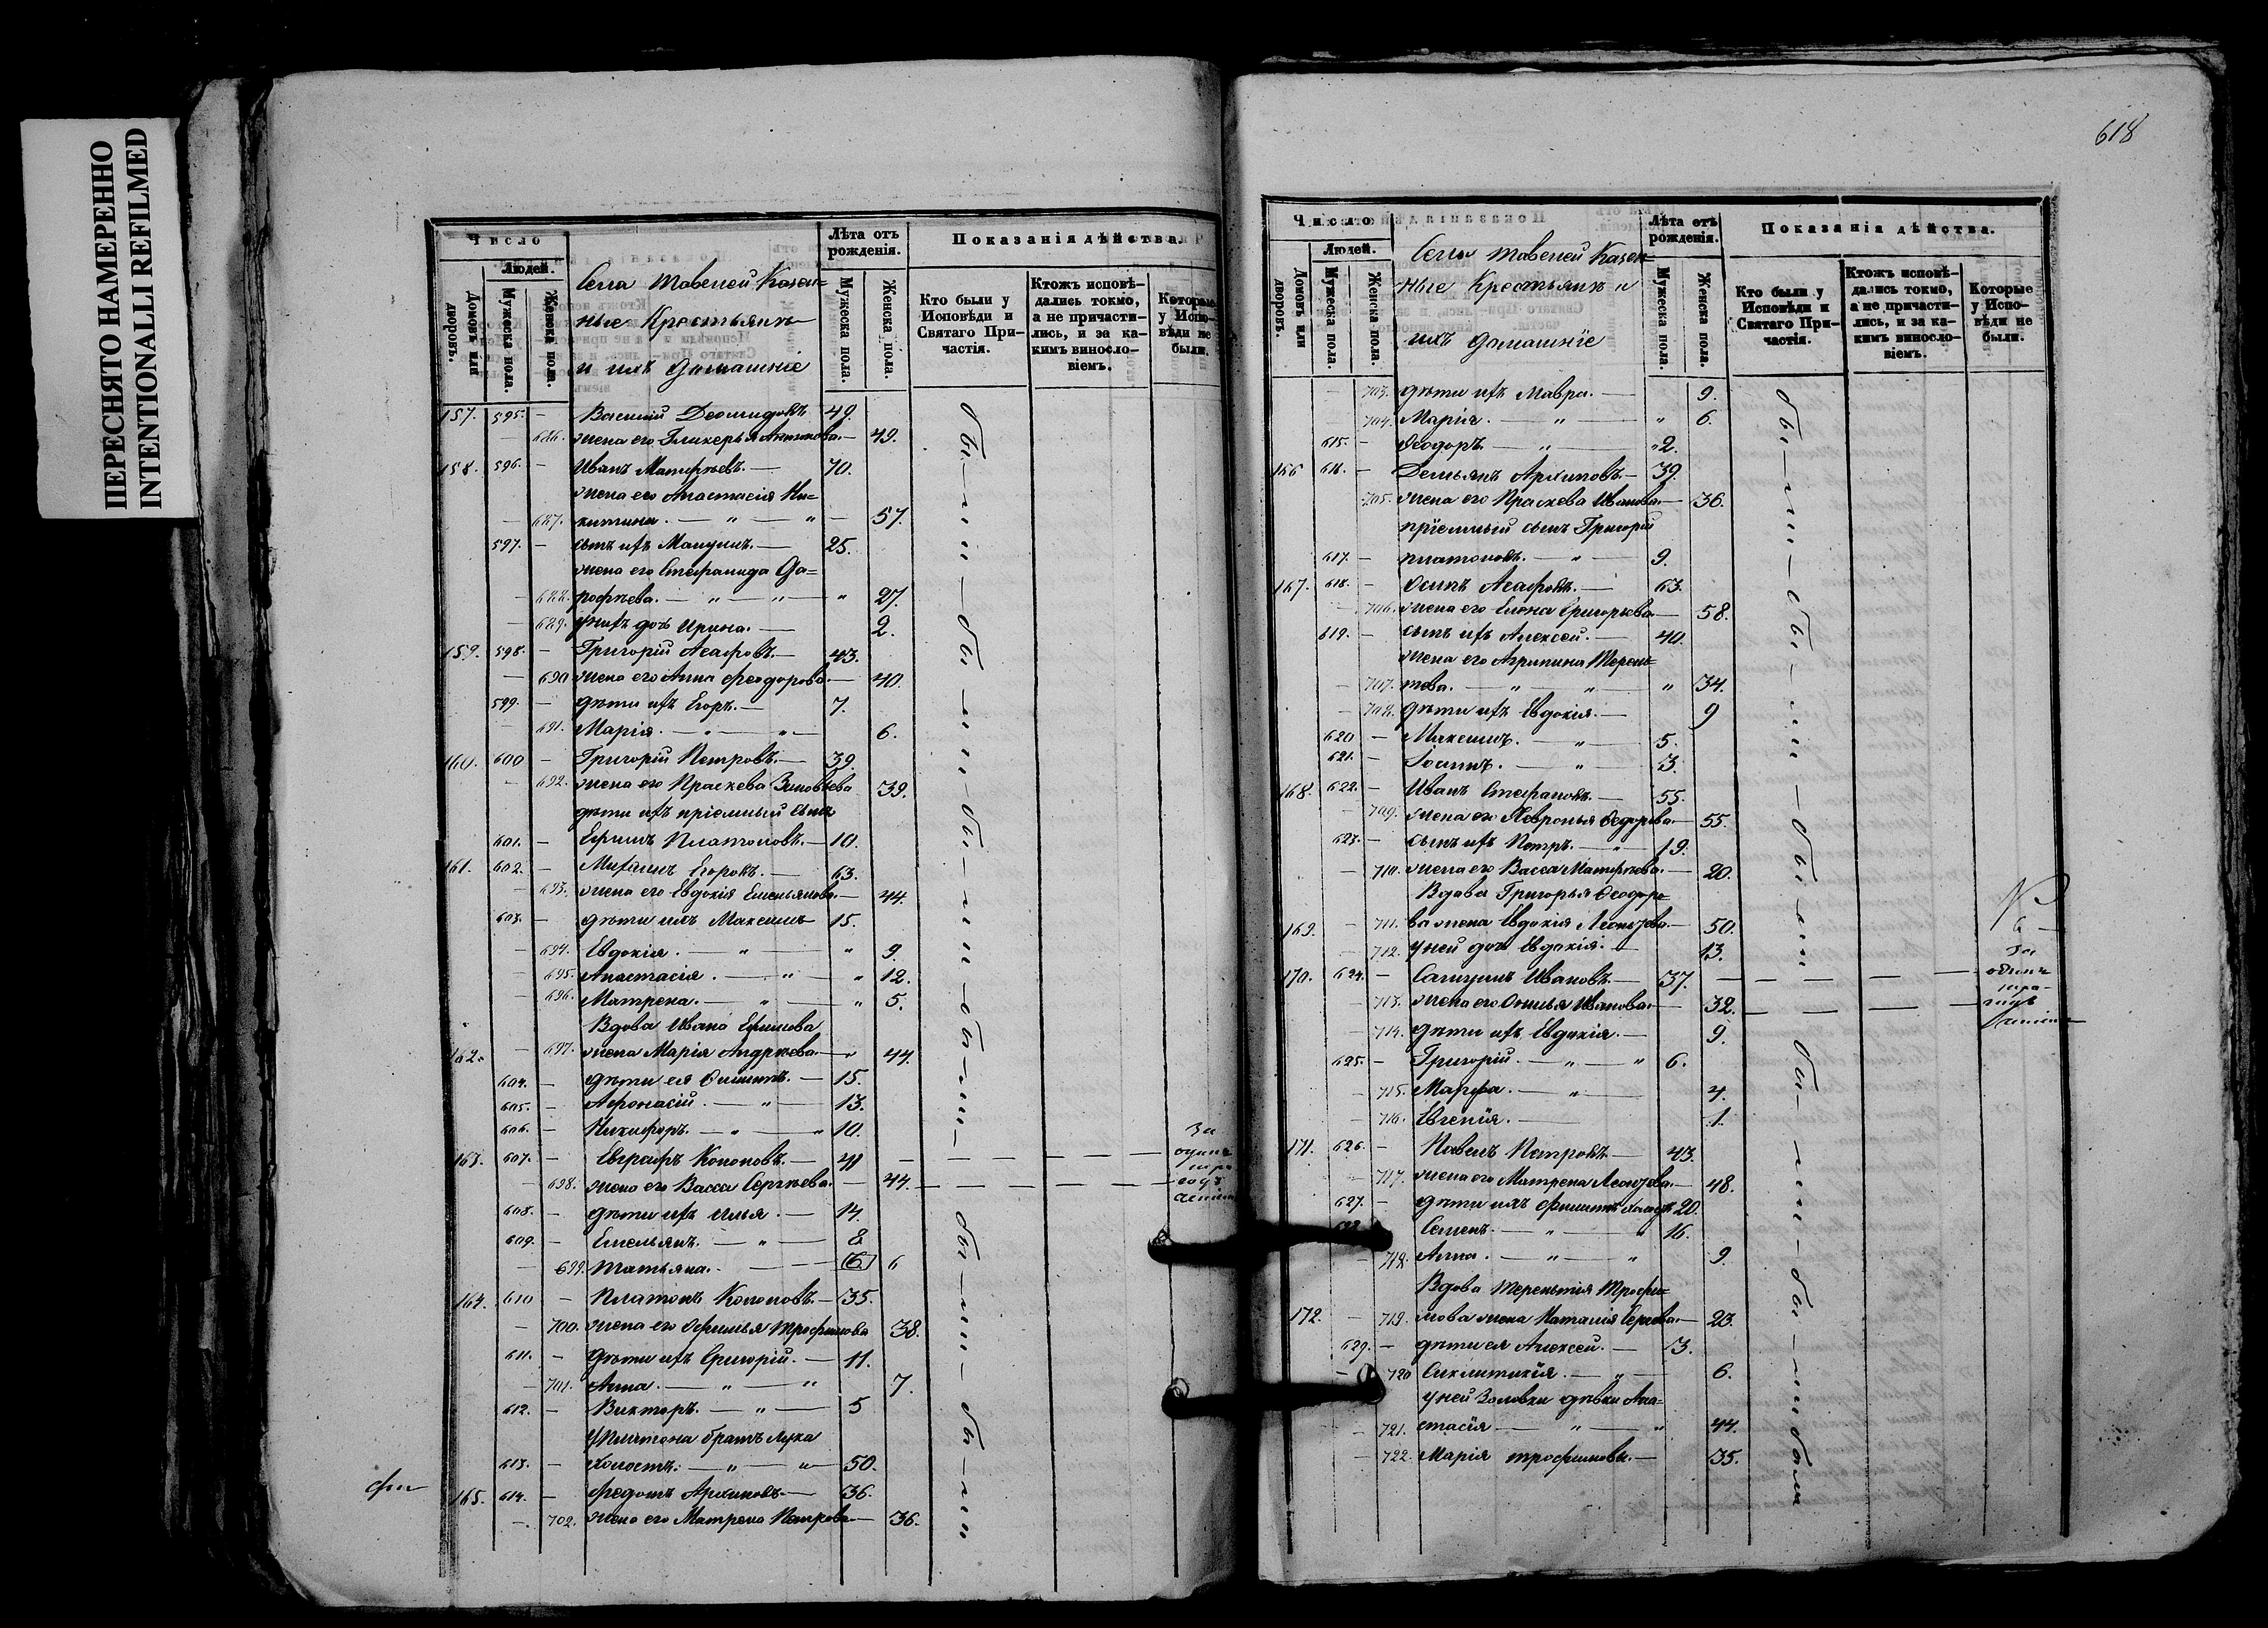 ПЕРЕСНЯТО НАМЕРЕННО
INTENTIONALLI REFILMED
618
Число
Людей.
Домовъ или дворовъ.
Мужеска пола.
Женска пола.
Села Товеней Казен=
ные Крестьянъ
и ихъ домашніе
Лѣта отъ рожденія.
Мужеска пола.
Женска пола.
Показанія дѣйства.
Кто были у Исповѣди и Святаго Причастія.
Ктожъ исповѣдались токмо, а не причастились, и за какимъ винословіемъ.
Которые у Исповѣди не были.
157. 595. - Василій 49.
- 686. жена его Гликерья Антипова. 49.
158. 596. - Иванъ Матвѣевъ. 70.
жена его Анастасія Ни=
- 687. китина. — " — " — 57.
597. - сынъ ихъ 25.
жена его Стефанида До=
- 688. рофѣева. — " — " — " 27.
- 689. у нихъ дочь Ирина. — 2.
159. 598. - Григорій Асафовъ. — 43.
- 690 жена его Анна Феодорова. 40.
599. - дѣти ихъ Егоръ. — 7.
- 691. Марія. — " — " — 6.
160. 600 - Григорій Петровъ. — 39.
- 692. жена его Праскева Зиновьева 39.
дѣти ихъ пріемный сынъ
601. - Ефимъ Платоновъ. — 10.
161. 602. - Егоровъ. — 63.
- 693. жена его Евдокія Емельянова. — 44.
603. - дѣти ихъ Максимъ 15.
- 694. Евдокія. — " — " 9.
- 695. Анастасія. — " — " 12.
- 696. Матрена. — " — " 5.
Вдова Ивана Ефимова
162. - 697. жена Марія Андрѣева. — " 44.
604. - дѣти ея — 15.
605. - Афонасій. — " — 13.
606. - Никифоръ. — " — " 10.
163. 607. - Евграфъ Кононовъ. — 41
- 698. жена его Васса Сергѣева. — 44.
За
608. - дѣти ихъ Илья. — 14.
609. - Емельянъ. — " — 8
- 699. Татьяна. — 6 6
164. 610 - Платонъ Кононовъ. — 35.
- 700. жена его Офимья Трофимова 38.
611. - дѣти ихъ Григорій. — 11.
- 701. Анна. — " — " 7.
612. - Викторъ. — " — 5
у Платона братъ Лука
613. - холостъ. — " — " — 50.
165. 614. - Федотъ Архиповъ. — 36.
- 702. жена его Матрена Петрова — 36.
бы-ли-бы-ли-бы-ли-бы-ли-
бы-ли-бы-ли
Число
Людей.
Домовъ или дворовъ.
Мужеска пола.
Женска пола.
Села Товеней Казен=
ные Крестьянъ и
ихъ домашніе
Лѣта отъ рожденія.
Мужеска пола.
Женска пола.
Показанія дѣйства.
Кто были у Исповѣди и Святаго Причастія.
Ктожъ исповѣдались токмо, а не причастились, и за какимъ винословіемъ.
Которые у Исповѣди не были.
- 703. дѣти ихъ Мавра. — 9.
- 704. Марія. — " — " 6.
615. - Феодоръ. — " — " 2.
166 616. - Демьянъ Архиповъ. — 39.
- 705. жена его Праскева Иванова. — 36.
пріемный сынъ Григорій
617. - Платоновъ. — " — 9.
167. 618. - Осипъ Асафовъ. — 63.
- 706. жена его Елена Григорьева. — 58.
619. - сынъ ихъ Алексей. — 40.
жена его Агрипина Терень=
- 707. тева. — " — " — " 34.
- 708. дѣти ихъ Евдокія. — 9
620 - Максимъ. — " — 5.
621. - Іоаннъ. — " — 3.
168. 622. - Иванъ Стефановъ. — 55.
- 709. жена его Хевронья Федорова. — 55.
623. - сынъ ихъ Петръ. — " — 19.
- 710. жена его Васса Матвѣева. — 20.
Вдова Григорья Феодоро=
169. - 711. ва жена Евдокія — 50.
- 712. у ней дочь Евдокія. — 13.
170. 624. - Ивановъ. — 37.
- 713. жена его Иванова. — 32.
За
- 714. дѣти ихъ Евдокія. — 9.
625. - Григорій. — " — " 6.
- 715. Марфа. — " — 4.
- 716. Евгенія. — 1.
171. 626. - Павелъ Петровъ. — 43.
- 717. жена его Матрена — 48.
627. - дѣти ихъ 20.
628. - Семенъ. — " — " 16.
- 718. Анна. — " — " 9.
Вдова Терентія Трофи=
172. - 719. мова жена Наталія — 23.
629. - дѣти ея Алексей. — 3.
- 720 Сиклитикія. — " — 6.
у ней Золовки дѣвки Ана=
- 721. стасія — " — " 44.
- 722. Марія Трофимовы. — 35.
бы-ли-бы-ли-бы-ли
бы-ли-бы-ли были